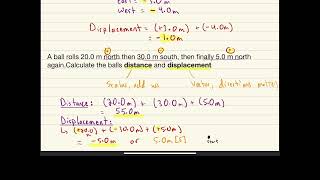 east = +
west = -6.0m
Displacement = (+3.0m) + (-4.0m)
= -1.0m
A ball rolls 20.0 m north then 30.0 m south, then finally 5.0 m north
again.Calculate the balls distance and displacement
Scalar, add us
Vector, directions matter
Distance: (20.0m) + (30.0m) + (5.0m)
= 55.0m
Displacement:
↳ (+20.0) + (-30.0m) + (+5.0m)
= -5.0m or 5.0m [S]